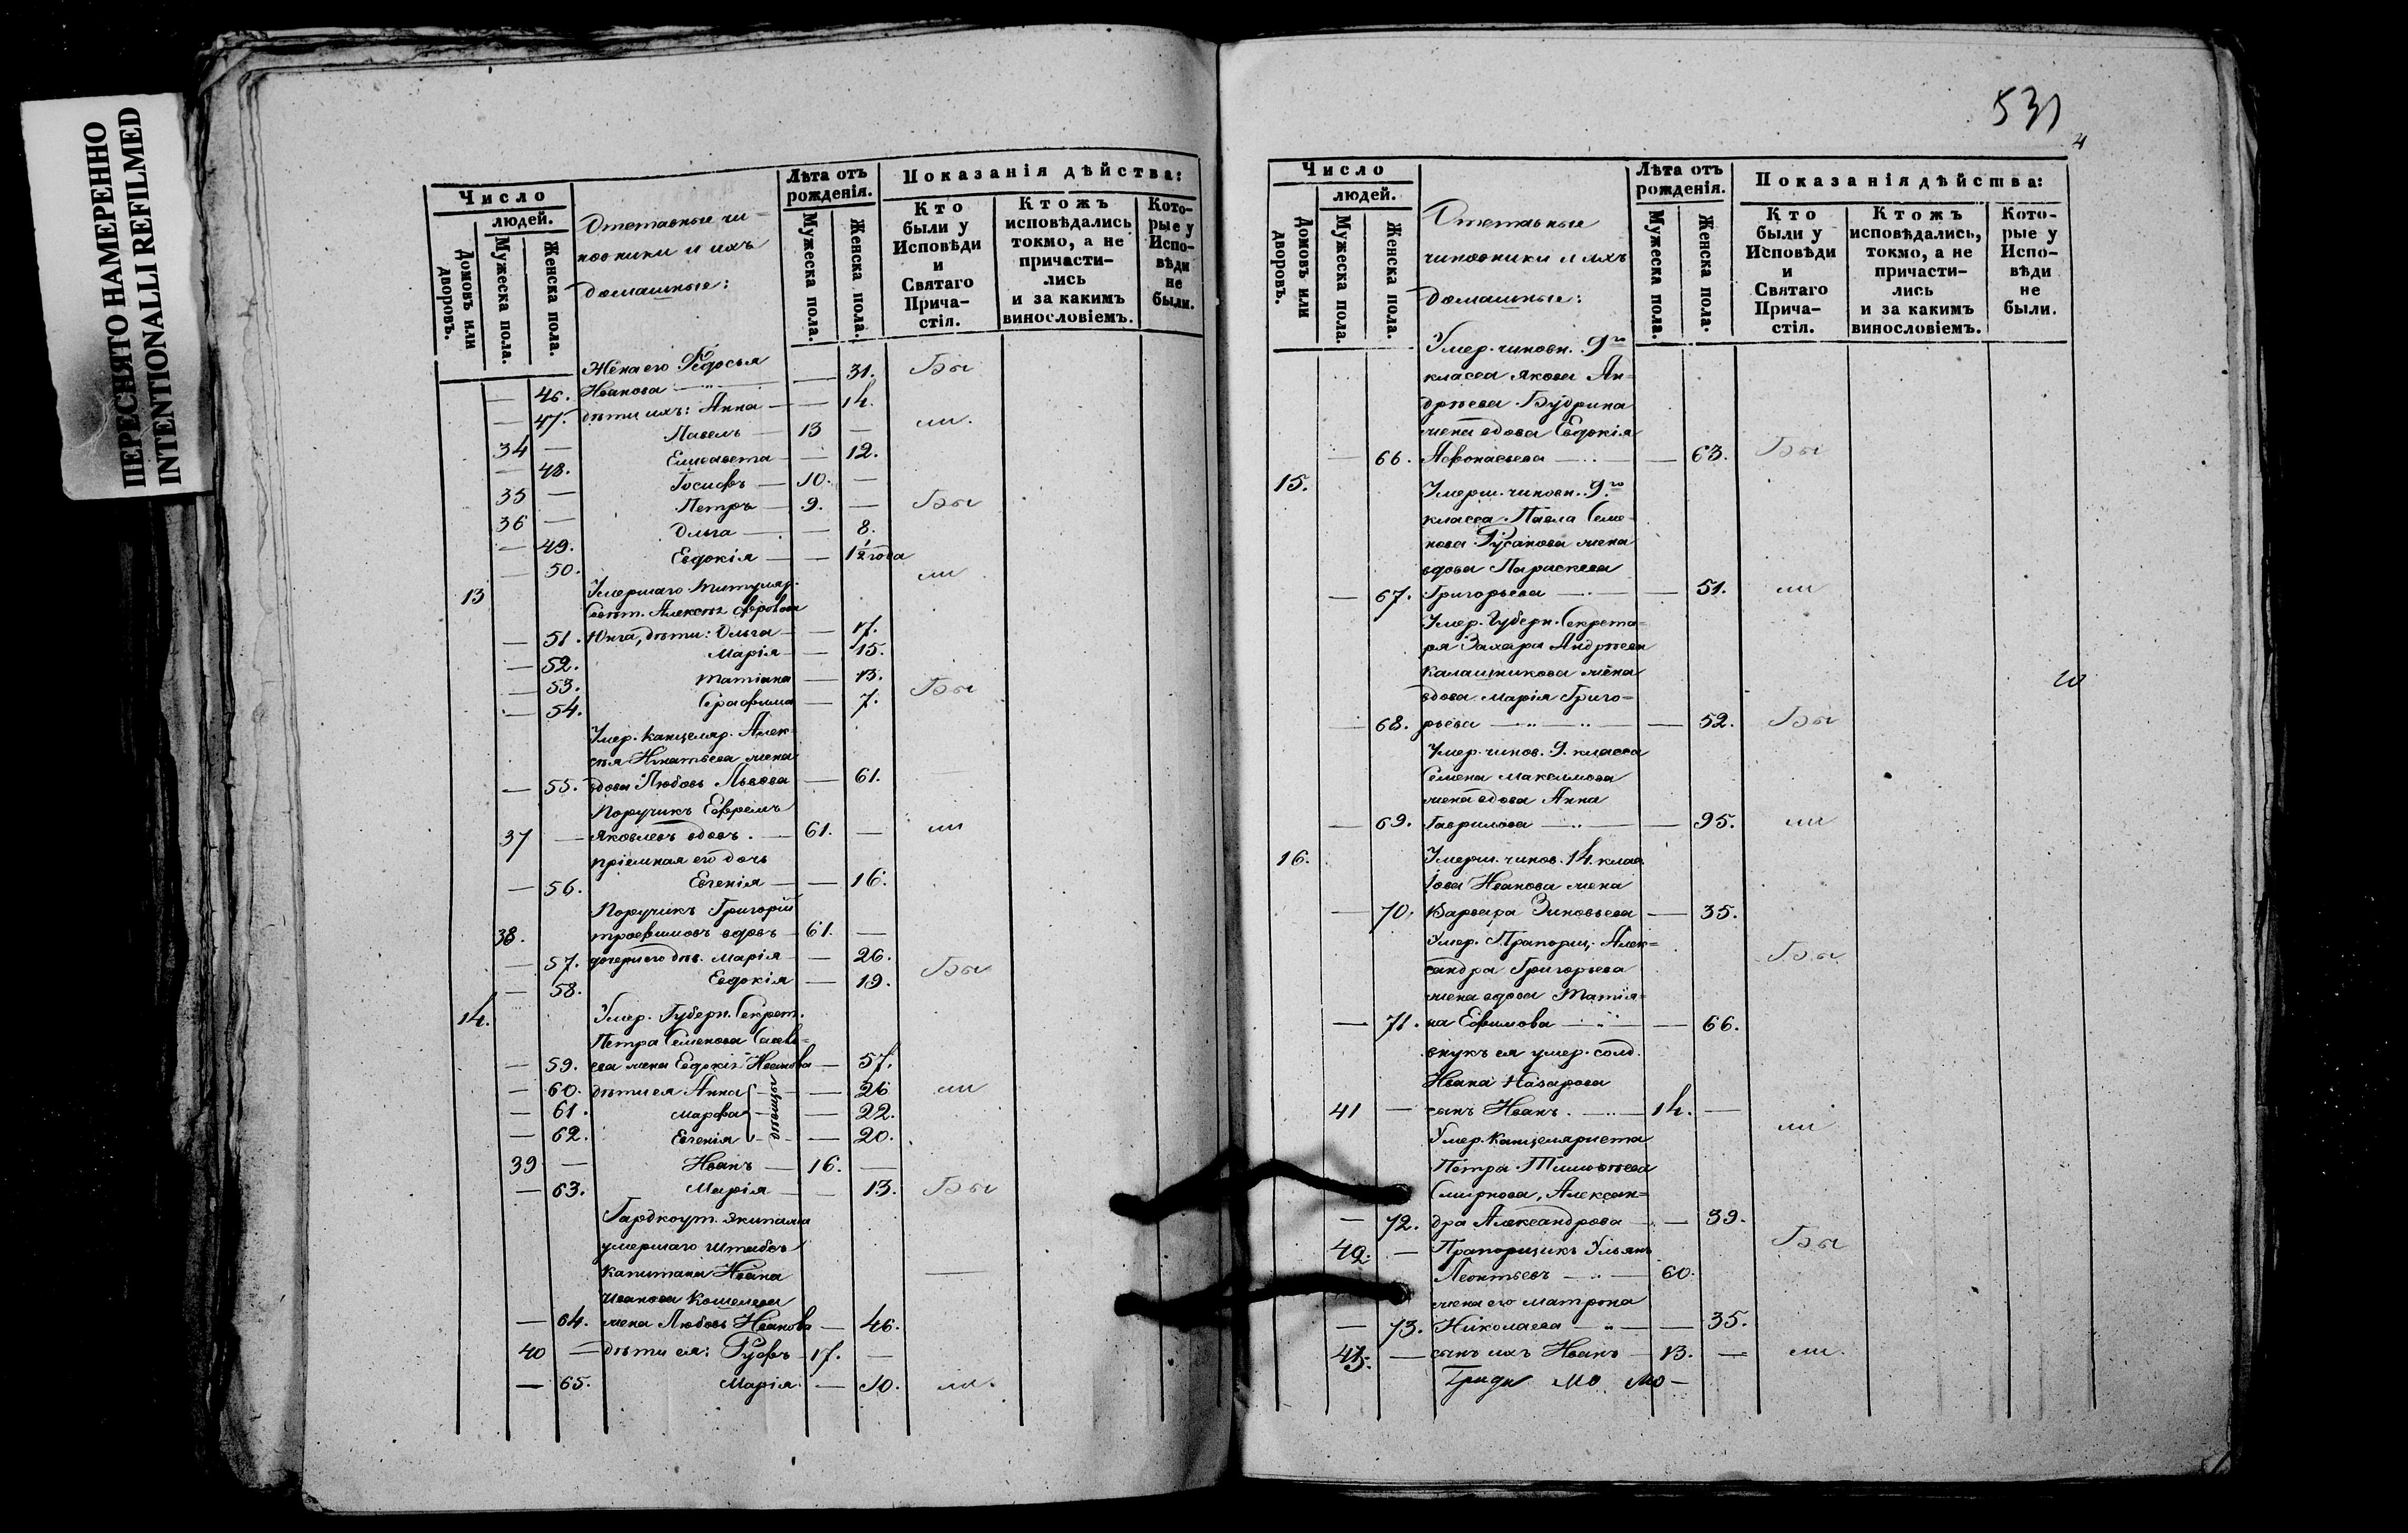 ПЕРЕСНЯТО НАМЕРЕННО
INTENTIONALLI REFILMED
Число
людей.
Домовъ или дворовъ.
Мужеска пола.
Женска пола.
Отставные чи-
новники и ихъ
домашные:
Лѣта отъ рожденія.
Мужеска пола.
Женска пола.
Показанія дѣйства:
Кто были у Исповѣди и Святаго Прича-стія.
Ктожъ исповѣдались токмо, а не причасти-лись и за какимъ винословіемъ.
Кото-рые у Испо-вѣди не были.
Жена его Федосья
— 46. Иванова — 31. Бы
— 47. дѣти ихъ: Анна — — 14.
34 — Павелъ — 13 — ли.
— 48. Елисавета — — 12.
35 — Іосифъ — 10. —
36 — Петръ — 9. — Бы
— 49. Ольга — — 8.
— 50. Евдокія — — 1 1/2 года
13 Умершаго титуляр. ли
Совѣт. Алексѣя
— 51. дѣти: Ольга — — 17.
— 52. Марія — — 15.
— 53. Татіана — 13.
— 54. Серафима — 7. Бы
Умер. канцеляр. Алек-
сѣя Игнатьева жена
— 55. вдова Любовь Львова — 61.
Поручикъ Ефремъ
37 — Яковлевъ вдовъ. — 61. — ли
пріемная его дочь
— 56. Евгенія — — 16.
Поручикъ Григорій
38. Трофимовъ вдовъ — 61. —
— 57. дочери его дѣв. Марія — — 26.
— 58. Евдокія — 19. Бы
14. Умер. Губерн. Секрет.
Петра Семенова
— 59. жена Евдокія Иванова — 57.
— 60. дѣти ея Анна — 26 ли
— 61. Марфа — — 22.
— 62. Евгенія — — 20.
дѣвицы
39 — Иванъ — 16. —
— 63. Марія — — 13. Бы
Гардкоут. экипажа
умершаго Штабсъ
Капитана Ивана
Иванова Кошелева
— 64. жена Любовь Иванова — 46.
40 — дѣти ея: Руфъ — 17. —
— 65. Марія — 10. ли.
531
4
Число
людей.
Домовъ или дворовъ.
Мужеска пола.
Женска пола.
Отставные
чиновники и ихъ
домашные:
Лѣта отъ рожденія.
Мужеска пола.
Женска пола.
Показанія дѣйства:
Кто были у Исповѣди и Святаго Прича-стія.
Ктожъ исповѣдались, токмо, а не причасти-лись и за какимъ винословіемъ.
Кото-рые у Испо-вѣди не были.
Умер. чиновн. 9го
класса Якова Ан-
дрѣева Будрина
жена вдова Евдокія
— 66. Афонасьева — — 63. Бы
15. Умерш. чиновн. 9го
класса Павла Семе-
нова Русанова жена
вдова Параскева
— 67. Григорьева — — 51. ли
Умер. Губерн. Секрета-
ря Захара Андрѣева
Калашникова жена
вдова Марія Григо-
— 68. рьева — — 52. Бы
Умер. чинов. 9. класса
Семена Максимова
жена вдова Анна
— 69. Гаврилова — — 95. ли
16. Умерш. чинов. 14. клас.
Іова Иванова жена
— 70. Варвара Зиновьева — 35.
Умер. Прапорщ. Алек-
сандра Григорьева Бы
жена вдова Татiя-
— 71. на Ефимова — — 66.
внукъ ея умер. солд.
Ивана Назарова
41 — сынъ Иванъ. — 14. —
Умер. Канцеляриста ли
Петра Тимофѣева
Смирнова, Алексан-
— 72. дра Александрова — — 39.
42. — Прапорщикъ Ульянъ Бы
Леонтьевъ — 60.
жена его Матрона
— 73. Николаева — — 35.
43. — сынъ ихъ Иванъ — 13. — ли.